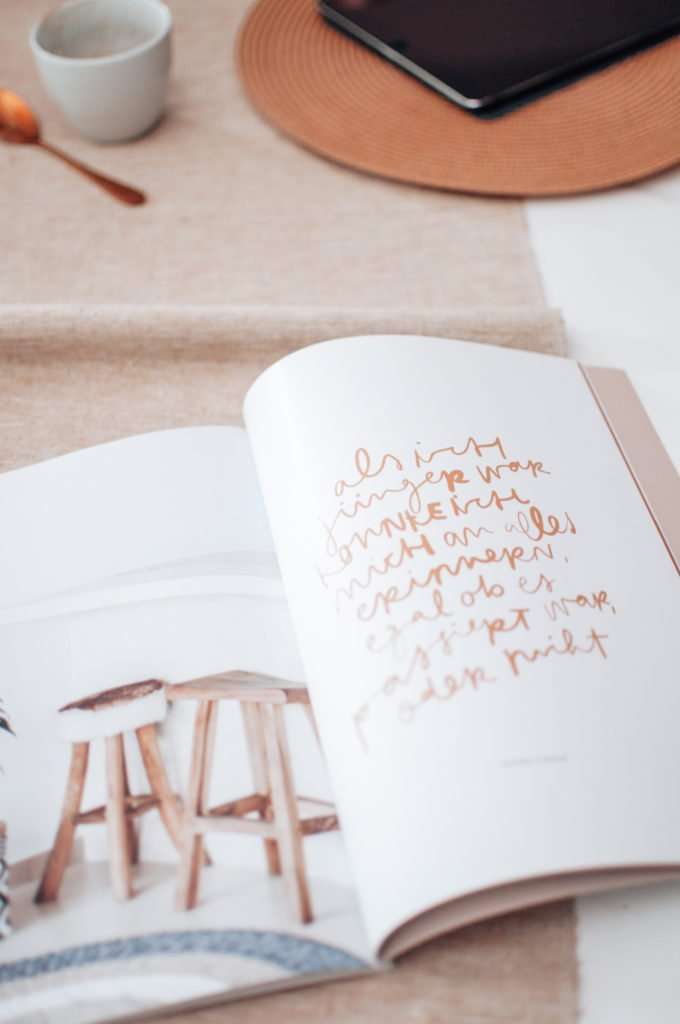 als ich
jünger war
konnte ich
mich an alles
erinnern,
egal ob es
passiert war,
oder nicht